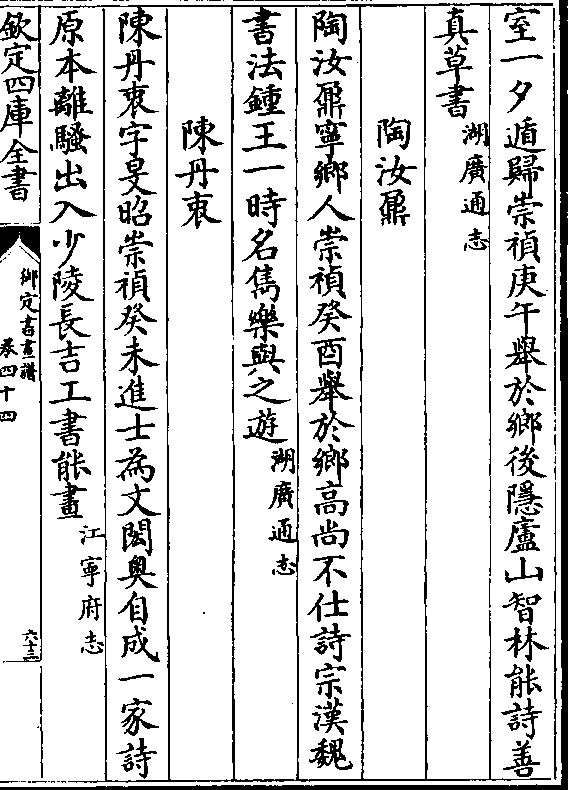 室一夕遁歸崇禎庚午舉於鄉後隱廬山智林能詩善
真草書湖廣通志
陶汝鼐
陶汝鼐寧鄉人崇禎癸酉舉於鄉高尚不仕詩宗漢魏
書法鍾王一時名雋樂與之遊湖廣通志
陳丹衷
陳丹衷字旻昭崇禎癸未進士為文閎奧自成一家詩
原本離騷出入少陵長吉工書能畫江寧府志
欽定四庫全書
御定書畫譜
卷四十四
六十三